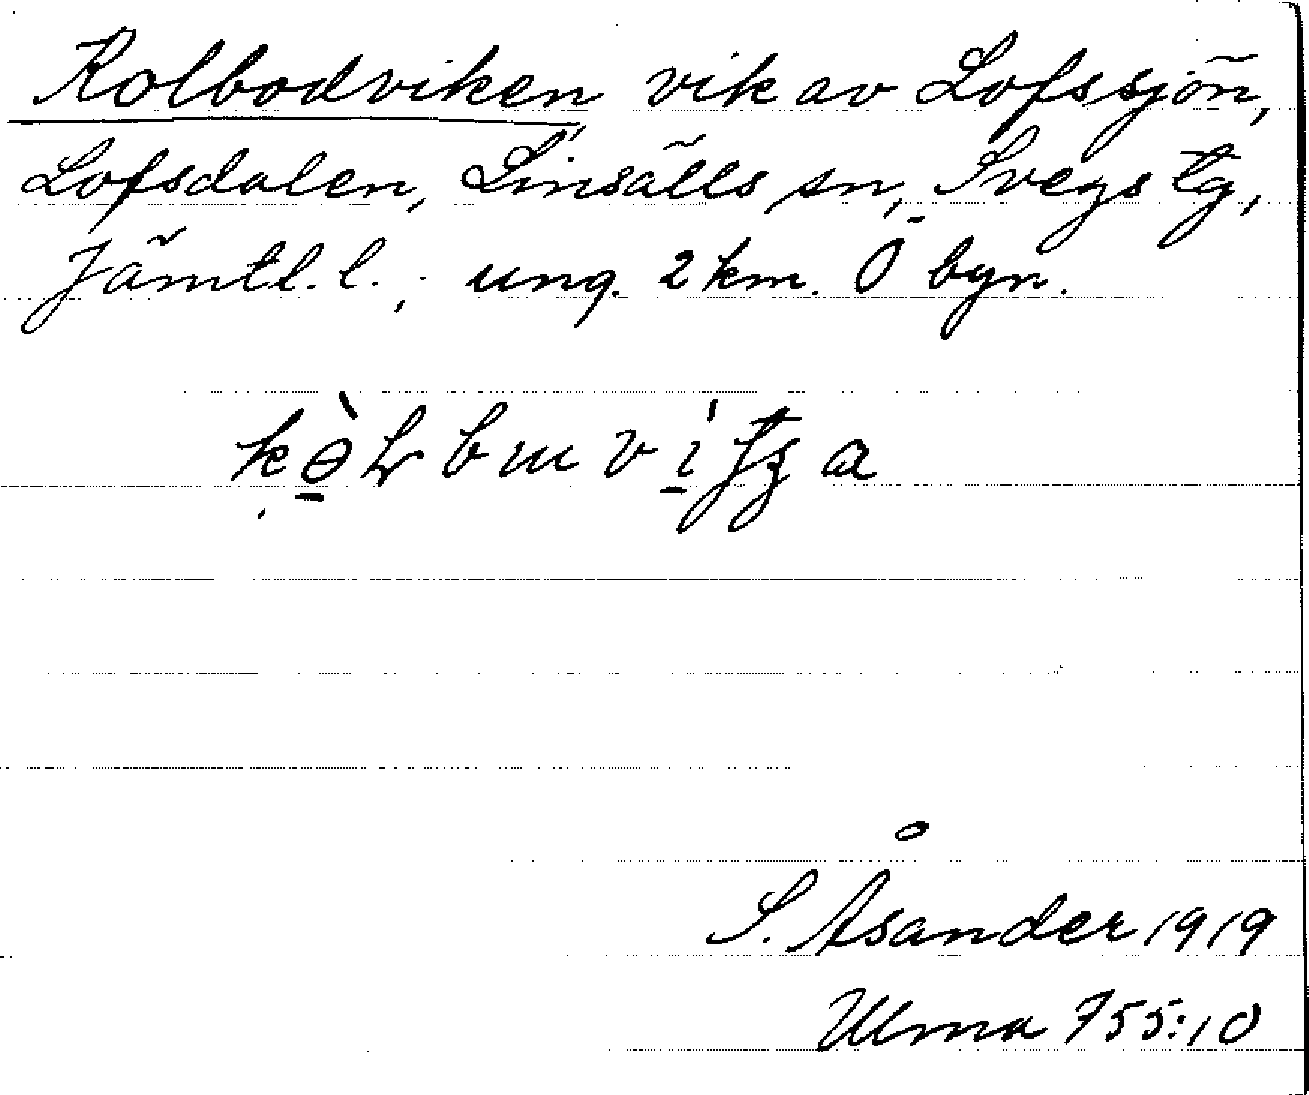 Kolbodviken vik av Lofssjön,
Lofsdalen, Linsälls sn, Svegs tg,
Jämtl. l.; ung. 2 km. Ö byn.
S. Åsander 1919
Ulma 755:10